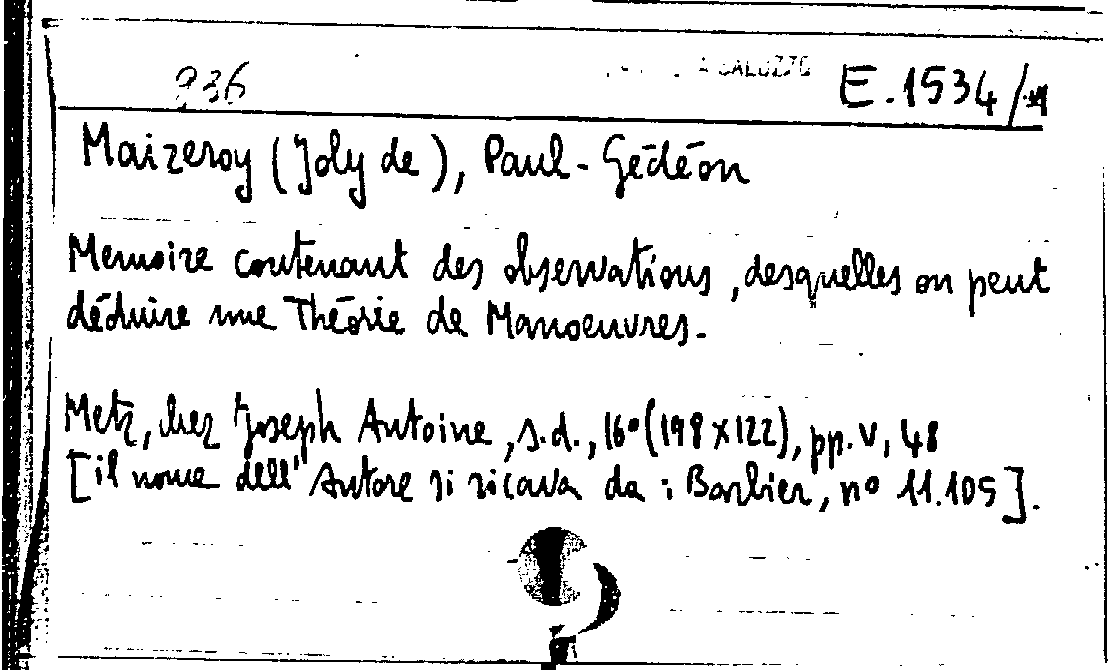 936 E.1534/
Maizeroy (Joly de), Paul-Gédéon
Memoire contenant des observations, desquelles on peut
déduire une Théorie de Manoeuvres.
Metz, chez Joseph Antoine, s.d., 16° (198 x 122), pp. V, 48
[il nome dell' Autore si ricava da: Barbier, n° 11.105].